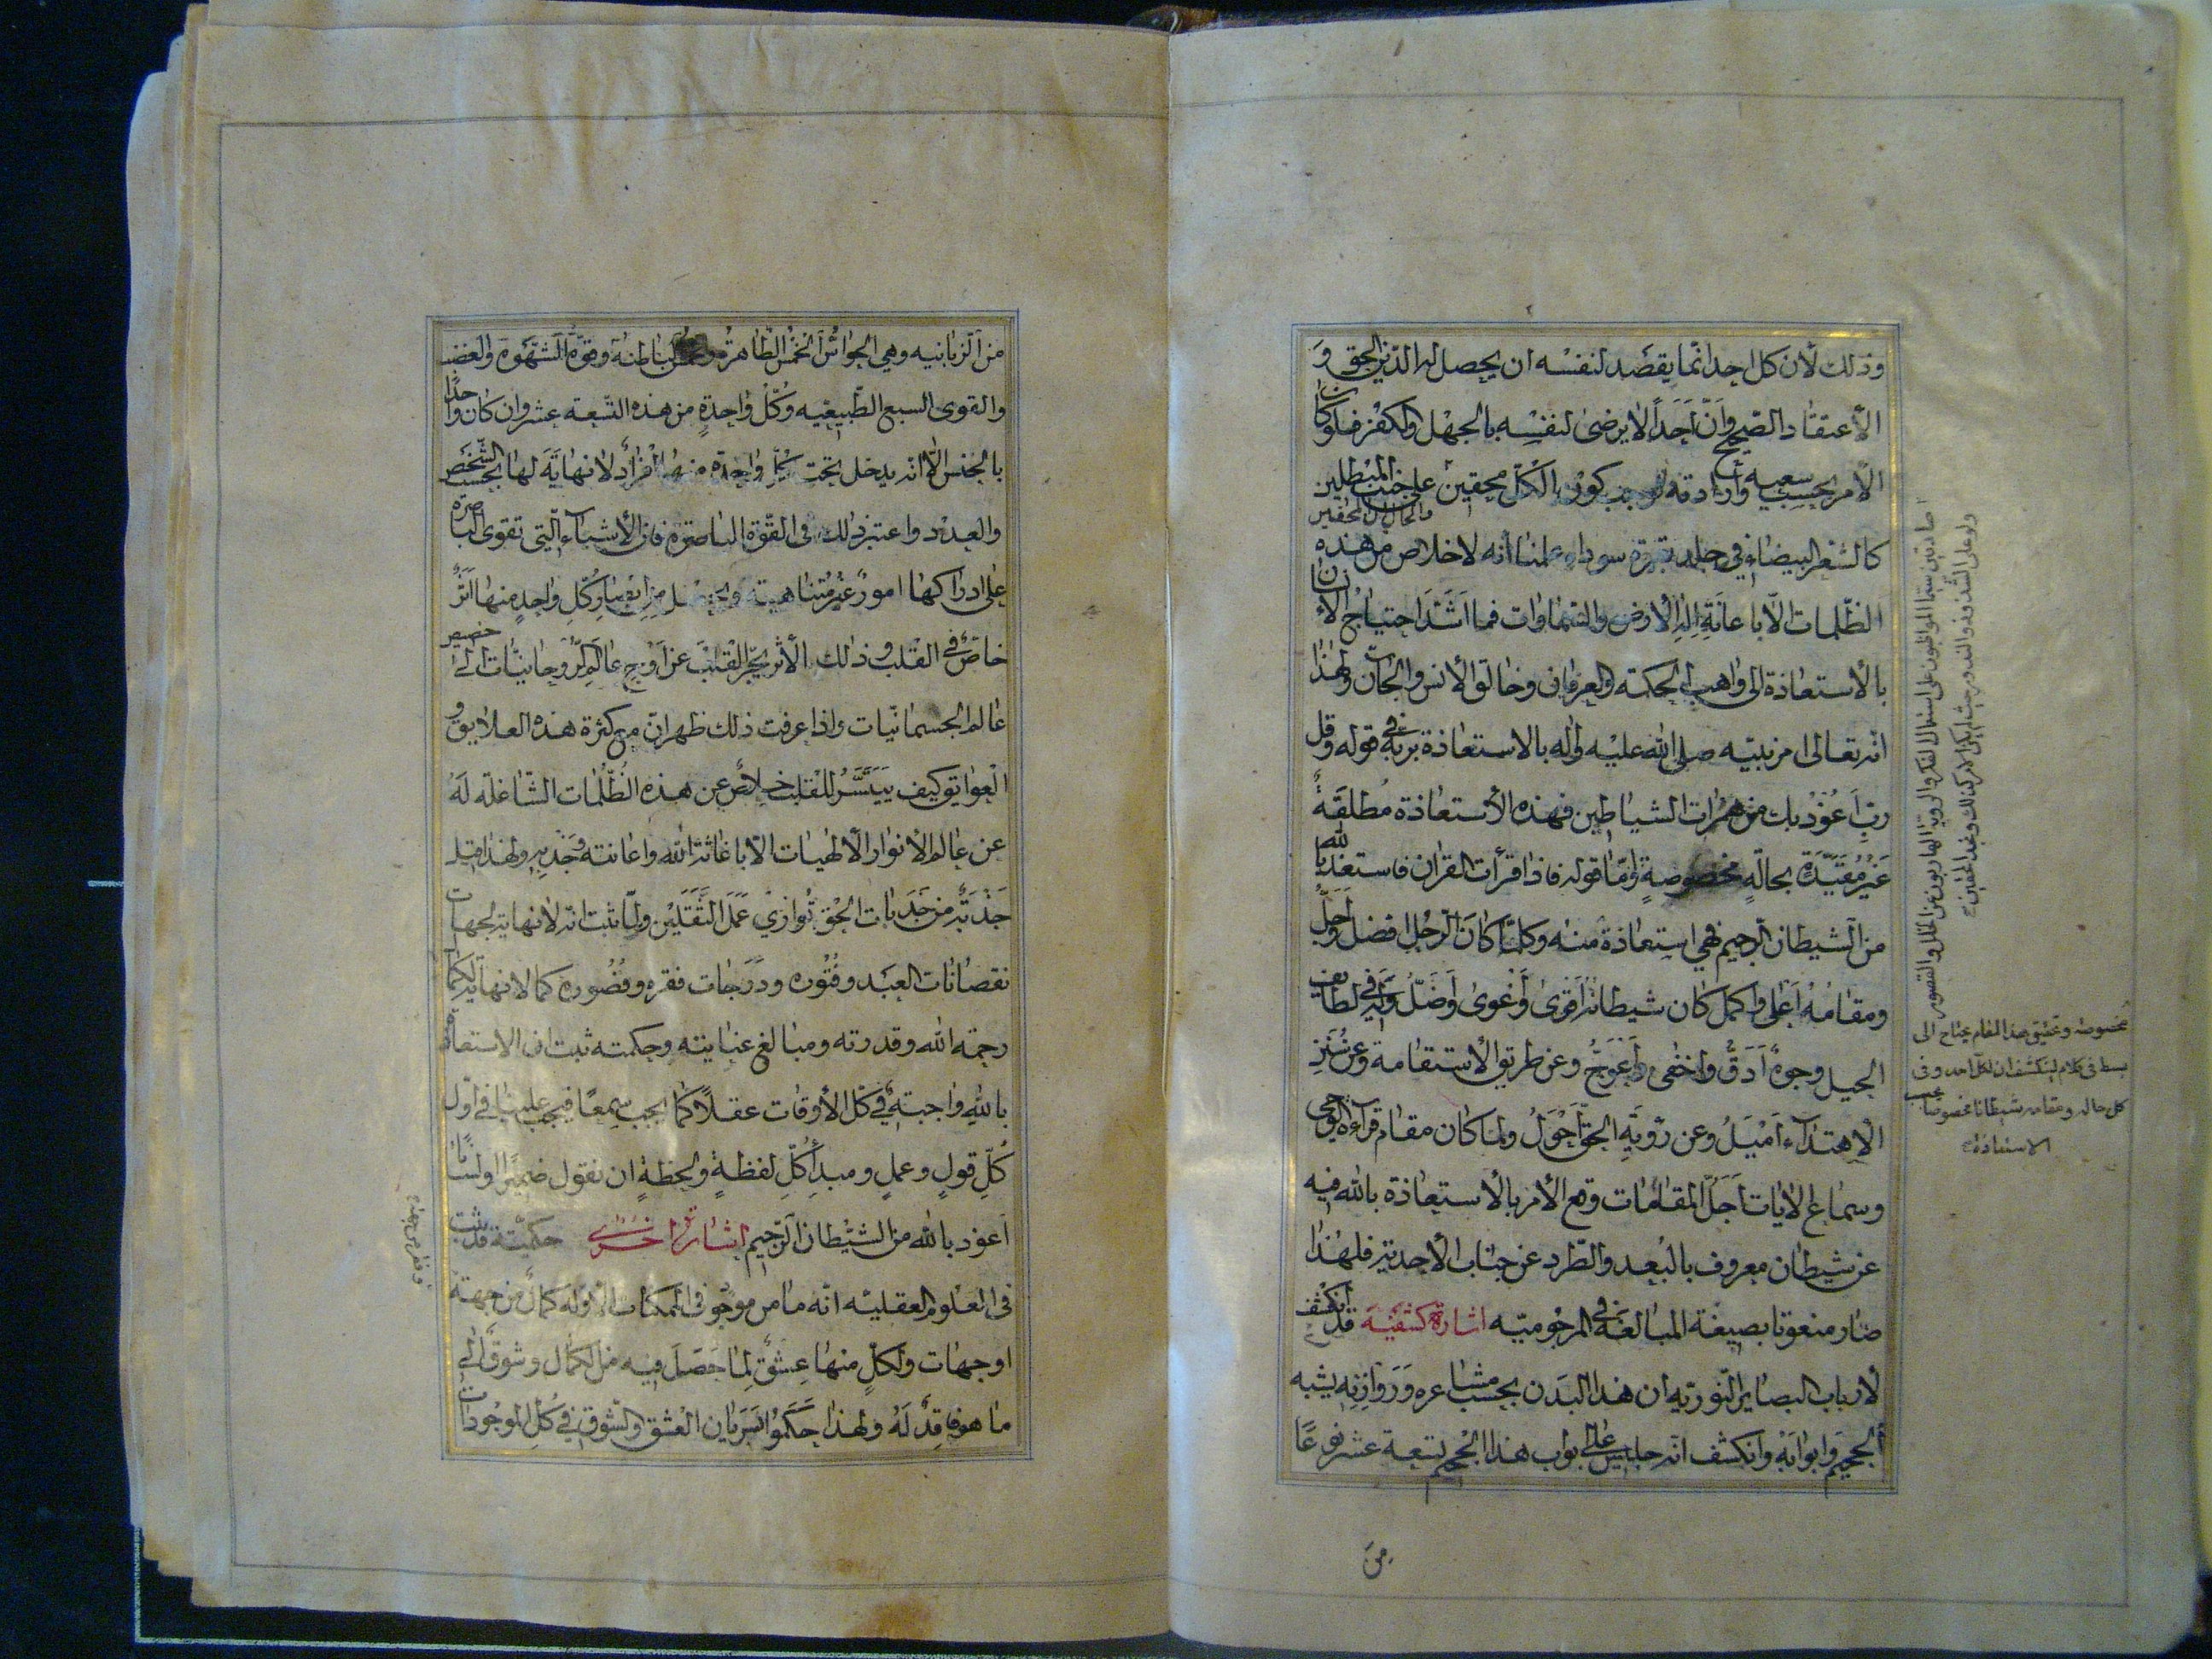 وذلك لأن كل احد انّما يقصد لنفسه ان يحصل له الدّين الحق و
الأعتقاد الصّحيح وانّ احدًا لا يرضى لنفسه بالجهل والكفر فلو كان
الأمر بحسب سعيه وارادته لوجب كون الكلّ محقين على جنب المبطلين
والحال ان المحقين
كالشعر البيضاء في جلد بقرة سوداء علمنا أنه لا خلاص من هذه
الظّلمات الّا باعانة اله الأرض والسّماوات فما اشدّ احتياج الانسان
بالأستعاذة الى واهب الحكمة والعرفان وخالق الأنس والجانّ ولهذا
انّه تعالى امر نبيّه صلى الله عليه وآله بالاستعاذة بربّه في قوله وقل
ربّ اعوذ بك من همزات الشياطين فهذه الأستعاذة مطلقةٌ
غير مقيّدة بحالةٍ مخصوصةٍ وامّا قوله فاذا قرأت القران فاستعذ بالله
من الشيطان الرجيم فهي استعاذة منه وكلّما كان الرّجل افضل واجلّ
ومقامه اعلى واكمل كان شيطانه اقوى واغوى واضلّ وانّه في لطايف
الحيل وجوهٌ ادقّ واخفى واعوجّ وعن طريق الأستقامة وعن سنن
الاهتداء اميل وعن رؤية الحقّ احول ولمّا كان مقام قراءة الوحى
وسماع الايات اجلّ المقامات وقع الأمر بالأستعاذة بالله فيه
عن شيطان معروف بالبُعد والطّرد عن جناب الأحدية فلهذا
صار منعوتا بصيغة المبالغة في المرجوميّه اشارة كشفيّة قد انكشف
لارباب البصاير النّوريّه ان هذا البدن بحسب مشاعره وروازنه يشبه
الجحيم وابوابه وانكشف انّه جلس على ابواب هذا الجحيم تسعة عشر نوعًا
مخصوصه وتحقيق هذا المقام يحتاج الى
بسط في كلام لينكشف ان لكل احد وفى
كل حاله ومقامه شيطانا مخصوصا يجب
الاستعاذة
من
من الزبانيه وهي الحواسّ الخمس الظّاهرة والخمس الباطنة وقوّة الشّهوة والغضب
والقوى السبع الطّبيعيّه وكلّ واحدةٍ من هذه التّسعة عشر وان كان واحدًا
بالجنس الّا انّه يدخل تحت كلّ واحدة منها افرادٌ لا نهاية لها بحسب الشّخص
والعدد واعتبر ذلك فى القوّة الباصرة فان الأشياء الّتى تقوى الباصرة
على ادراكها امورٌ غير متناهية ويحصل من ابصار كلّ واحدٍ منها اثرٌ
خاصّ في القلب وذلك الأثر يجرّ القلب عن اوج عالم الرّوحانيّات الى حضيض
عالم الجسمانيّات واذا عرفت ذلك ظهر انّ مع كثرة هذه العلايق و
العوايق كيف يتيسّر للقلب خلاصٌ عن هذه الظّلمات الشّاغلة له
عن عالم الأنوار الألهيات الّا باغاثة الله واعانته وجذبه ولهذا قيل
جذبةٌ من جذبات الحقّ توازي عمل الثّقلين ولمّا ثبت انّه لا نهاية لجهات
نقصانات العبد وفتوره ودرجات فقره وقصوره كما لا نهاية لكمال
رحمة الله وقدرته ومبالغ عنايته وحكمته ثبت ان الاستعاذة
بالله واجبةٌ في كلّ الأوقات عقلًا كما يجب سمعًا فيجب علينا في اوّل
كلّ قولٍ وعملٍ ومبدأ كلّ لفظةٍ ولحظةٍ ان نقول ضميرًا ولسانًا
اعوذ بالله من الشّيطان الرّجيم اشارةٌ اخرى حكميّة قد ثبت
فى العلوم العقليّه انّه ما من موجود فى الممكنات الّا وله كمالٌ من جهة
او جهات ولكلٍّ منها عشقٌ لما حصل فيه من الكمال وشوقٌ الى
ما هو فاقدٌ له ولهذا حكموا بسريان العشق والشّوق في كل الموجودات